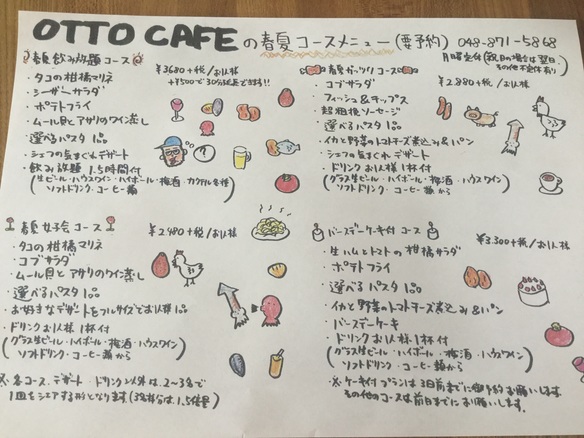 OTTO CAFE の 春夏 コースメニュー (要予約) 048-871-5868
月曜定休(祝日の場合は翌日)
その他不定休あり
春夏 飲み放題 コース
¥3680+税/お1人様
+¥500で30分延長できます!!
・タコの柑橘マリネ
・シーザーサラダ
・ポテトフライ
・ムール貝とアサリのワイン蒸し
・選べるパスタ 1品
・シェフの気まぐれデザート
・飲み放題 1.5時間付
(生ビール・ハウスワイン・ハイボール・梅酒・カクテル各種
ソフトドリンク・コーヒー類)
春夏 ガッツリ コース
¥2,880+税/お1人様
・コブサラダ
・フィッシュ&チップス
・超粗挽ソーセージ
・選べるパスタ 1品
・イカと野菜のトマトチーズ煮込み&パン
・シェフの気まぐれデザート
・ドリンクお1人様1杯付
(グラス生ビール・ハイボール・梅酒・ハウスワイン
ソフトドリンク・コーヒー類から)
春夏 女子会 コース
¥2,480+税/お1人様
・タコの柑橘マリネ
・コブサラダ
・ムール貝とアサリのワイン蒸し
・選べるパスタ 1品
・お好きなデザートをフルサイズでお1人様1品
・ドリンクお1人様1杯付
(グラス生ビール・ハイボール・梅酒・ハウスワイン
ソフトドリンク・コーヒー類から)
※各コース、デザート・ドリンク以外は、2~3名で
1皿をシェアする形となります(3名様分は1.5倍量)
バースデーケーキ付 コース
¥3,300+税/お1人様
・生ハムとトマトの柑橘サラダ
・ポテトフライ
・選べるパスタ 1品
・イカと野菜のトマトチーズ煮込み&パン
・バースデーケーキ
・ドリンクお1人様1杯付
(グラス生ビール・ハイボール・梅酒・ハウスワイン
ソフトドリンク・コーヒー類から)
※ケーキ付プランは3日前までに御予約お願いします。
その他のコースは前日までにお願いします。